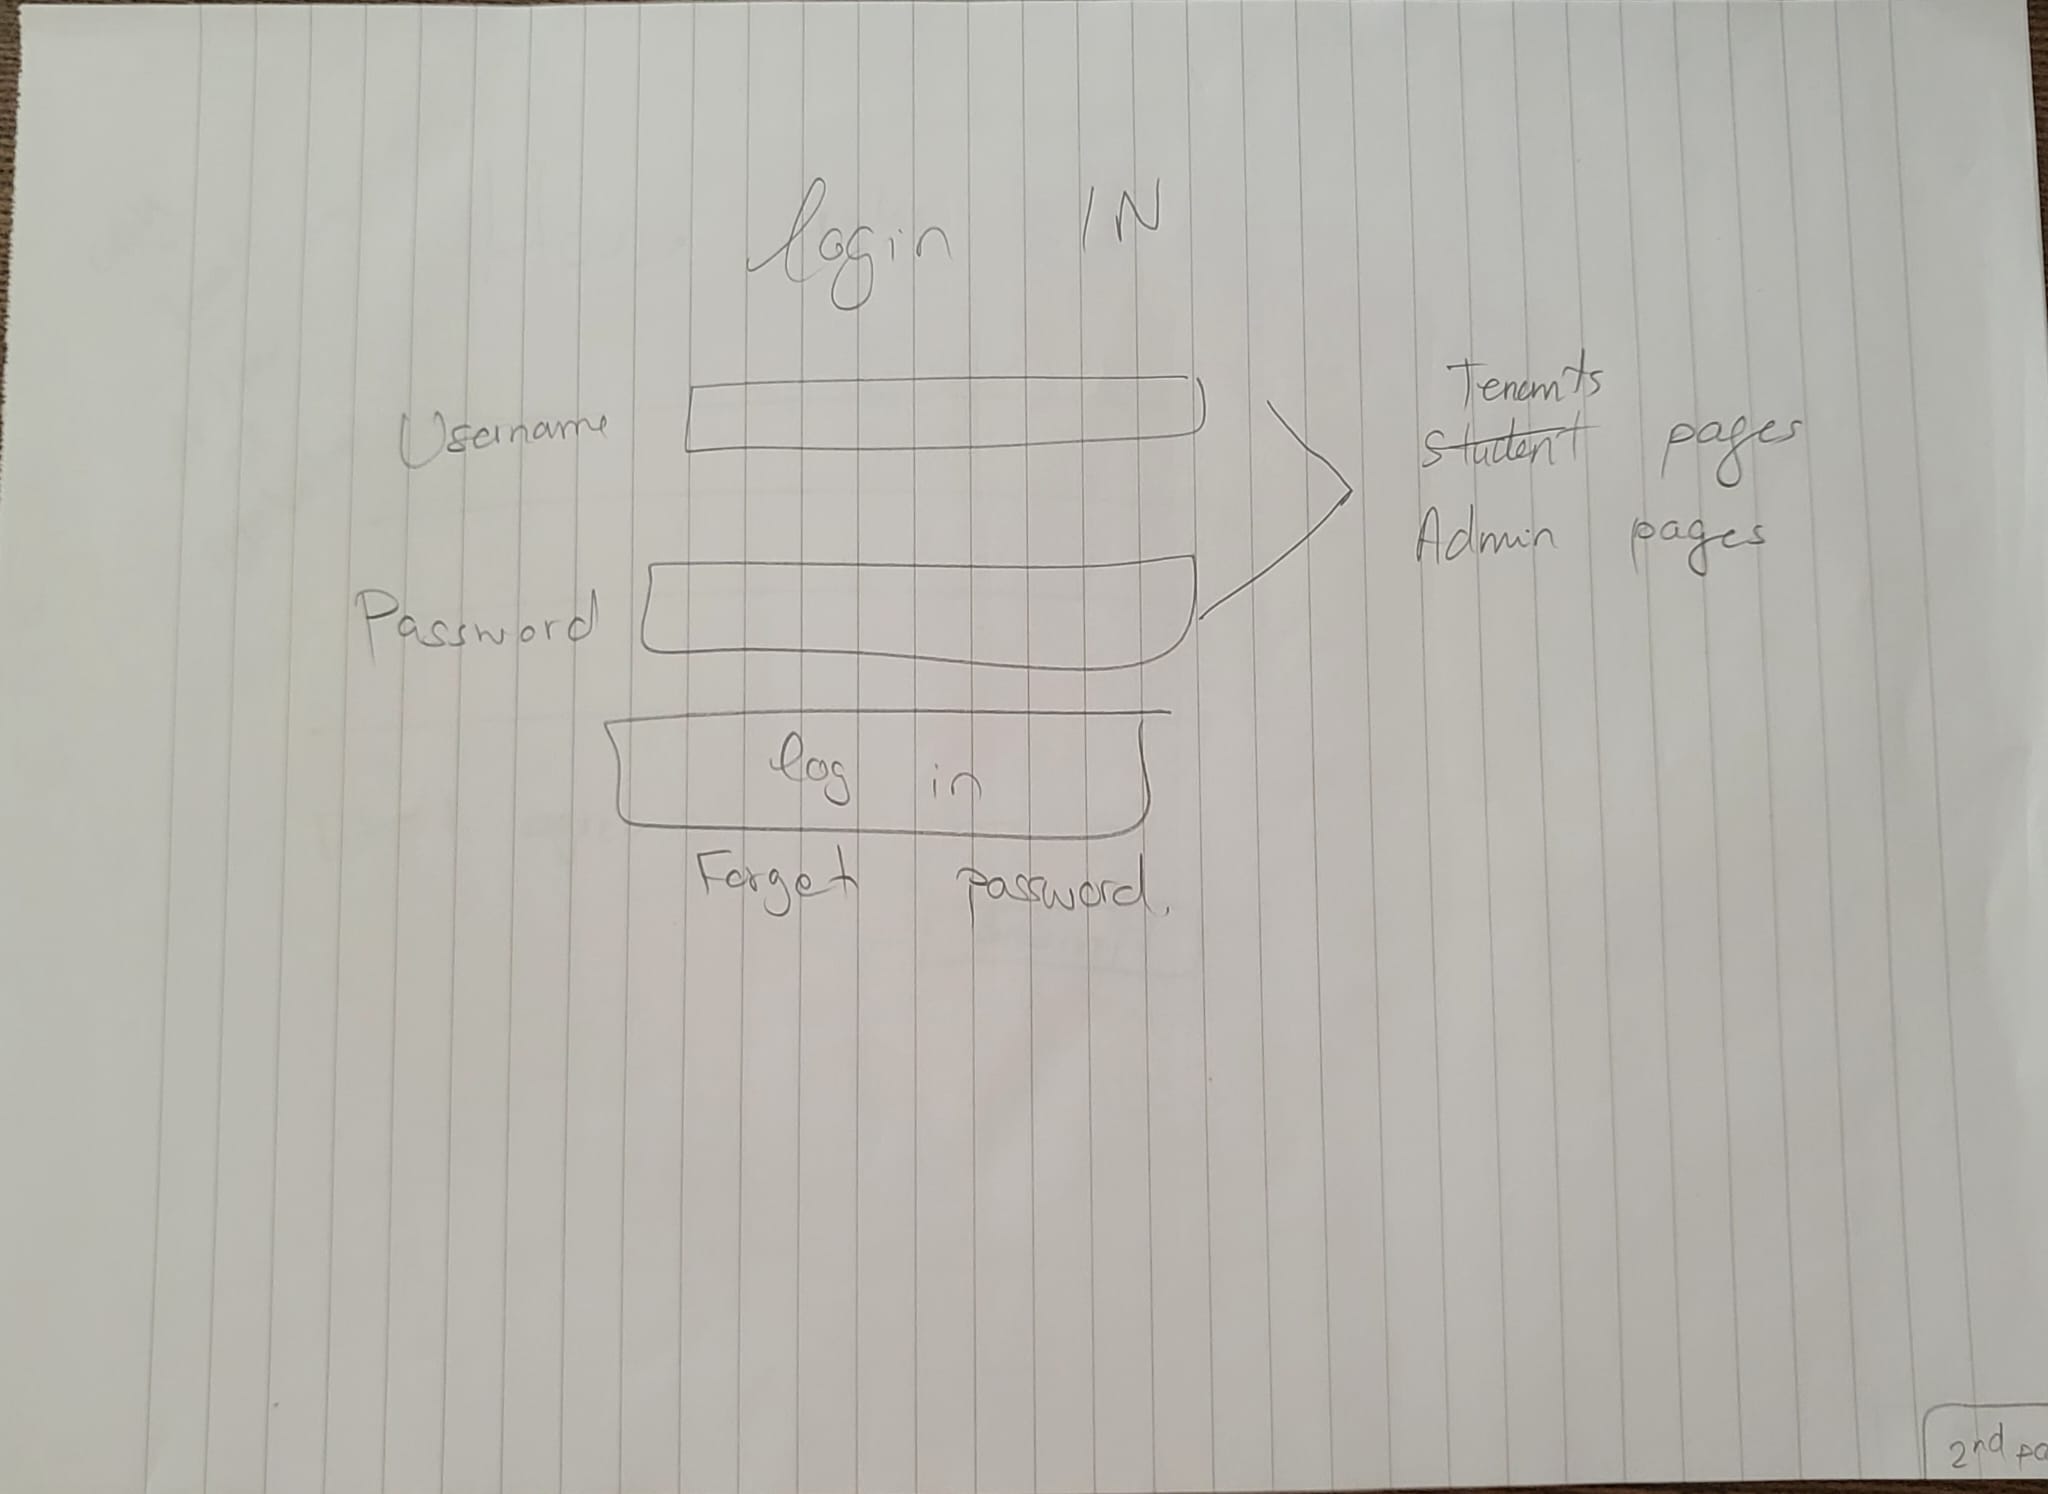 login IN
Username
Password
log in
Forget password.
Tenants
Student pages
Admin pages
2nd pa